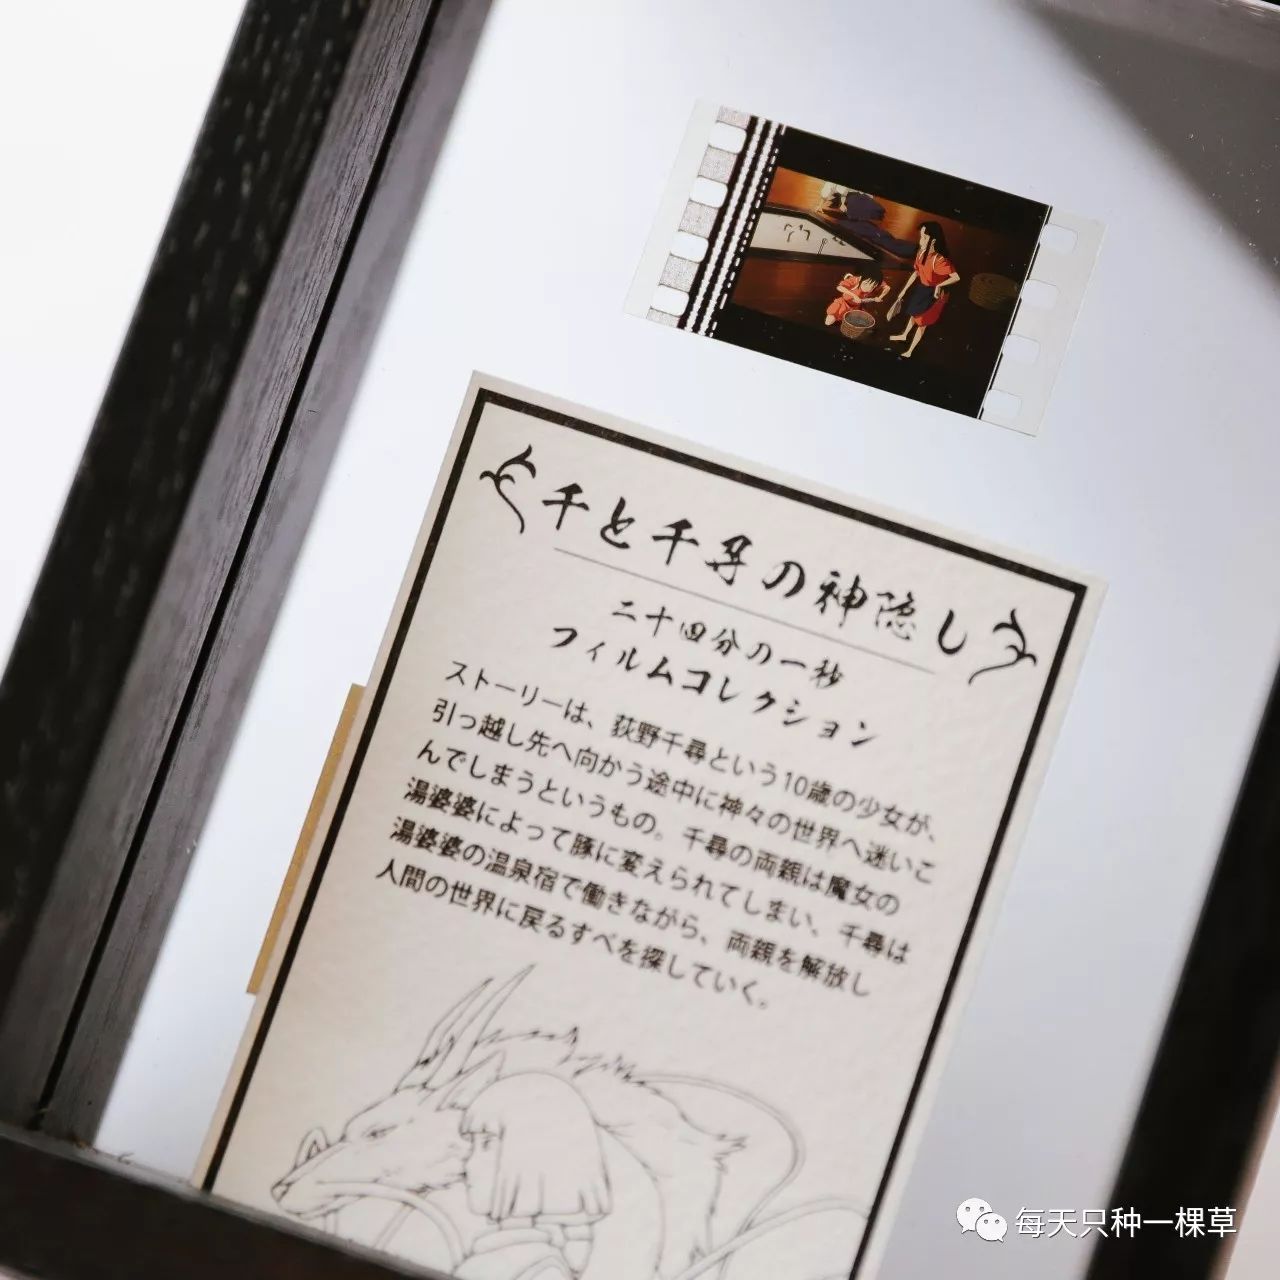 千と千尋の神隠し
二十四分の一秒
フィルムコレクション
ストーリーは、荻野千尋という10歳の少女が、
引っ越し先へ向かう途中に神々の世界へ迷いこ
んでしまうというもの。千尋の両親は魔女の
湯婆婆によって豚に変えられてしまい、千尋は
湯婆婆の温泉宿で働きながら、両親を解放し
人間の世界に戻るすべを探していく。
每天只种一棵草